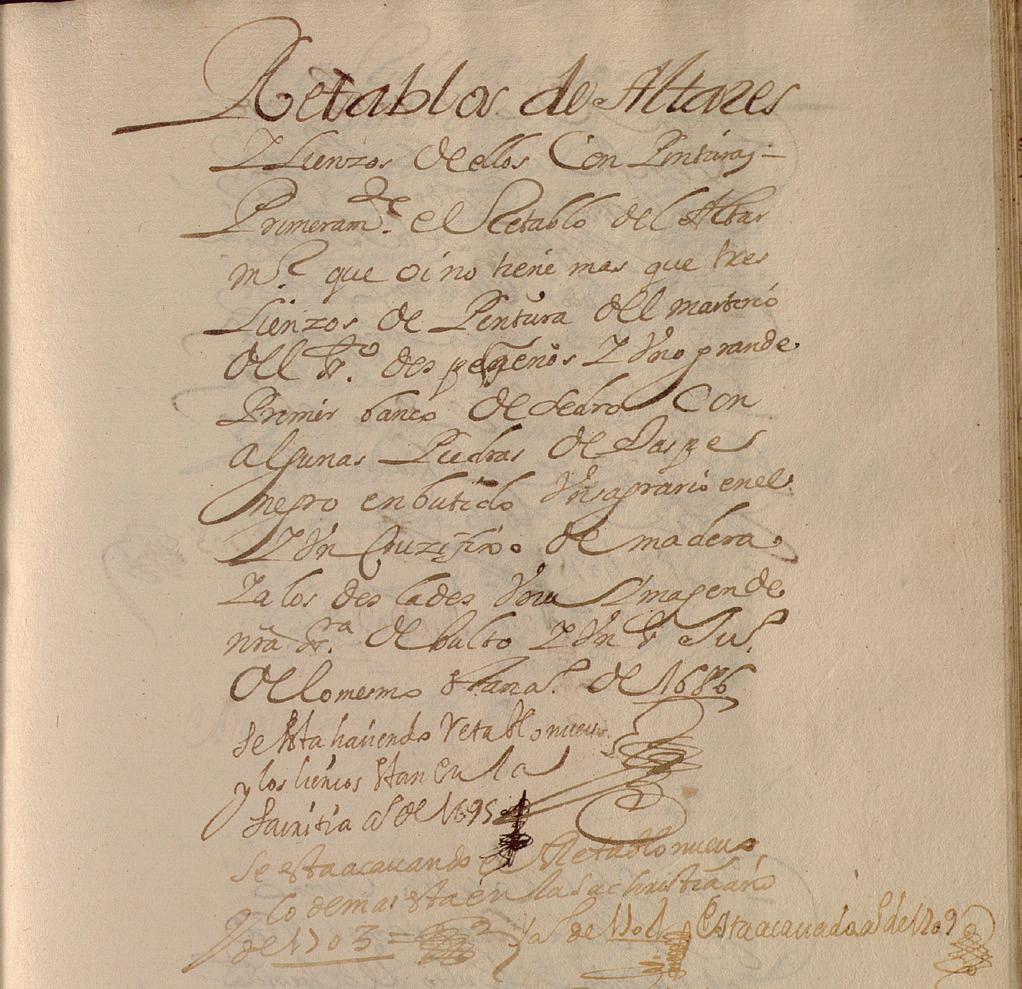 Retablos de Altares
Y Lienzos de ellos Con Pinturas
Primeram.te el Retablo del Altar
m.or que oi no tiene mas que tres
Lienzos de Pintura del martirio
del S.to dos pequeños Y Uno grande
Primer banco de Cedro Con
algunas Piedras de Jaspe
negro enbutido Un sagrario en el
Y Un Cruzifixo de madera
Y a los dos lados Una Ymagen de
nra Sr.a de bulto Y Un S Ju.
de lo mesmo de 1686
se esta haciendo retablo nuevo
y los liencos estan en la
sacristia a.s de 1695
Se esta acavando el Retablo nuevo
y lo demas esta en la sachristia año
de 1703 = Y a.s de 1701 Esta acavado a.s de 1709